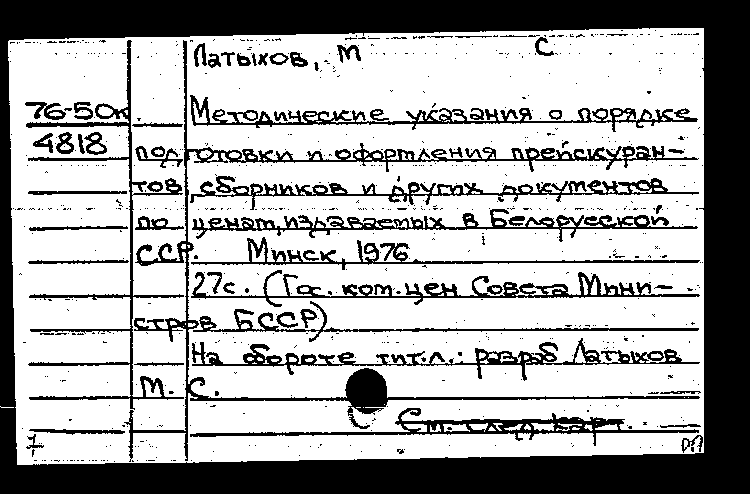 Латыхов, М С
76-50к Методические указания о порядке
4818 подготовки и оформления прейскуран-
тов, сборников и других документов
по ценам, издаваемых в Белорусской
ССР. Минск, 1976.
27с. (Гос. ком. цен Совета Мини-
стров БССР)
На обороте тит.л.: разраб Латыхов
М. С.
См. след. карт.